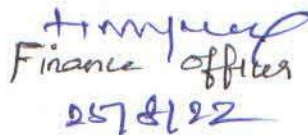 Finance Officer
25/8/22